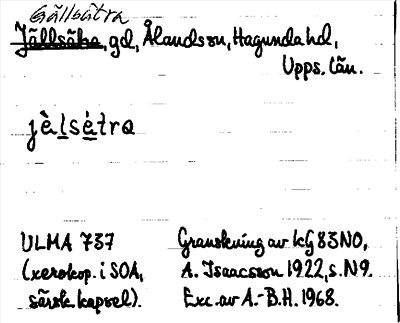 Gällsätra
Jällsäka, gd, Ålandssn, Hagundahd,
Upps. län.
jèlsétra
ULMA 737
(xerokop. i SOA,
särsk. kapsel).
Granskning av kg 83NO,
A. Isaacsson 1922, s. N9.
Exc. av A.-B.H. 1968.